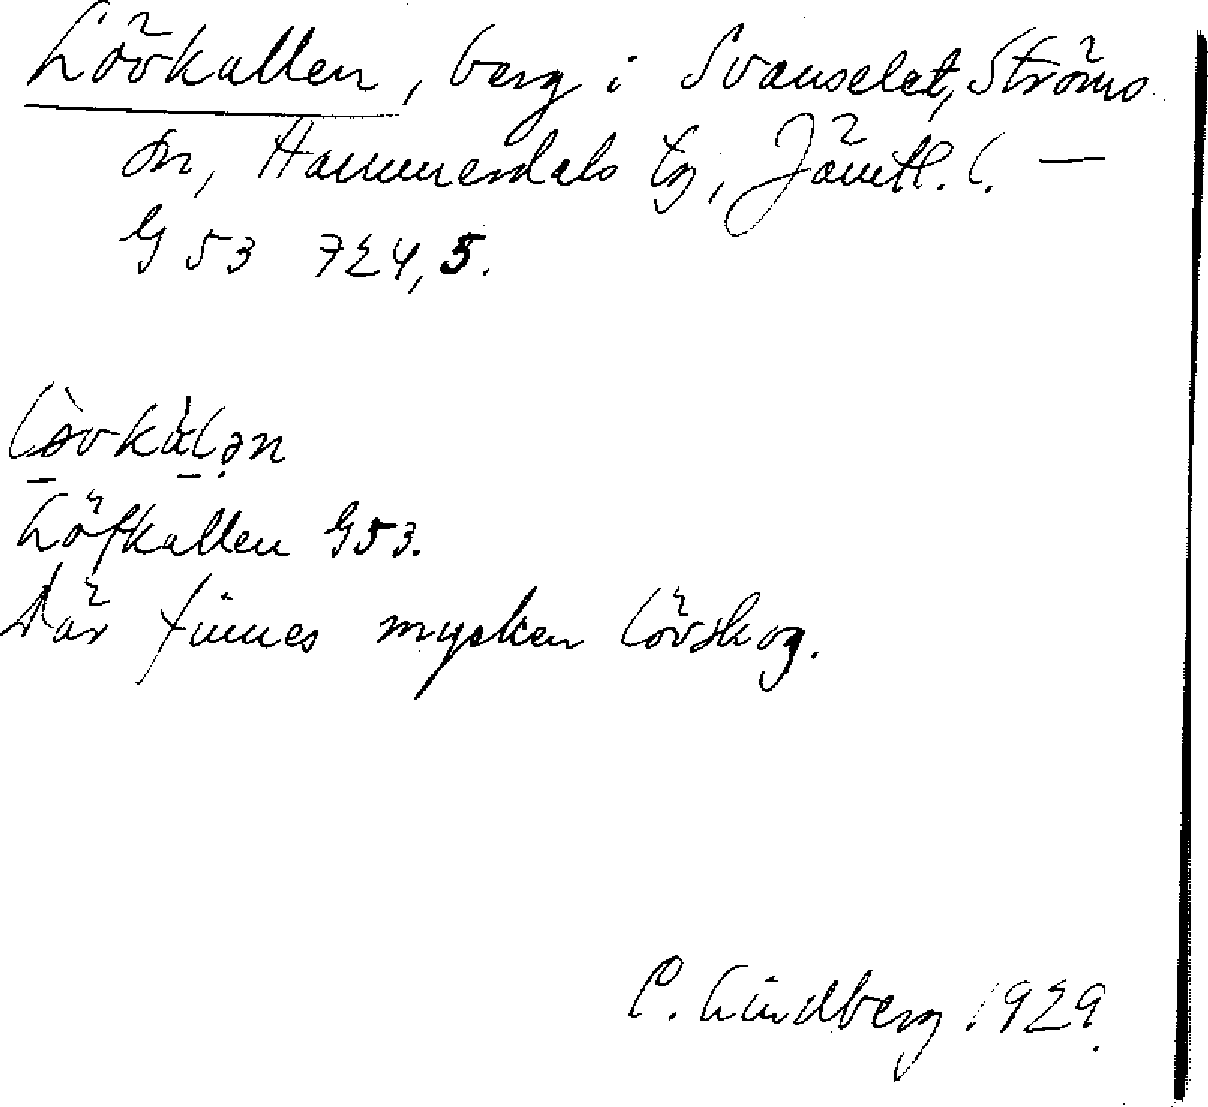 Lövkallen, berg i Svanselet, Ströms
sn, Hammerdals tg, Jämtl. l. —
G 53 724,5.
lòvkàlən
Löfkallen G53.
Där finnes mycken lövskog.
C. Lindberg 1929.